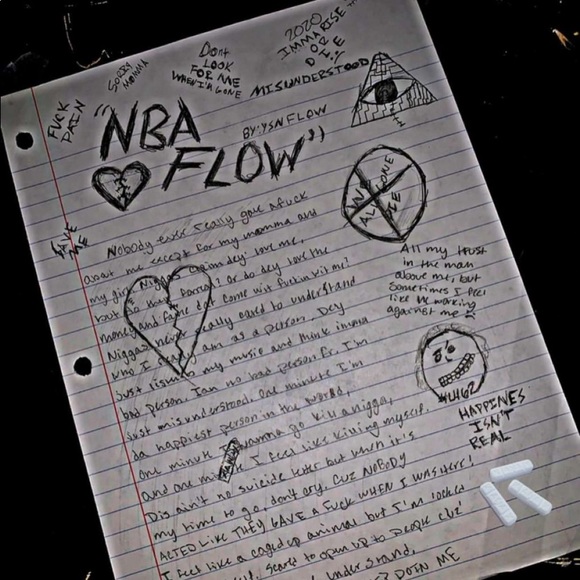 2020
IMMA RISE
OR
DIE
Dont
LOOK
FOR ME
WHEN I'M GONE
SORRY
MOMMA
MISUNDERSTOOD
FUCK
PAIN
"NBA
BY: YSN FLOW
FLOW"
ME
Nobody ever really gave a fuck
about me except for my momma and
my girl love me,
fasho? Or do dey love the
money and fame dat come wit fuckin wit me?
Niggas never really cared to understand
who I really am as a person. Dey
just listen to my music and think imma
bad person. Ian no bad person fr. I'm
just misunderstood. One minute I'm
da happiest person in the world,
one minute I wanna go kill a nigga,
and one minute I feel like killing myself.
Dis ain't no suicide letter but when it's
my time to go, don't cry. Cuz NOBODY
ACTED LIKE THEY GAVE A FUCK WHEN I WAS HERE!
I feel like a caged up animal but I'm locked
scared to open up to people cuz
understand.
DOIN ME
All my trust
in the man
above me, but
sometimes I feel
like he working
against me
HAPPINES
ISN'T
REAL